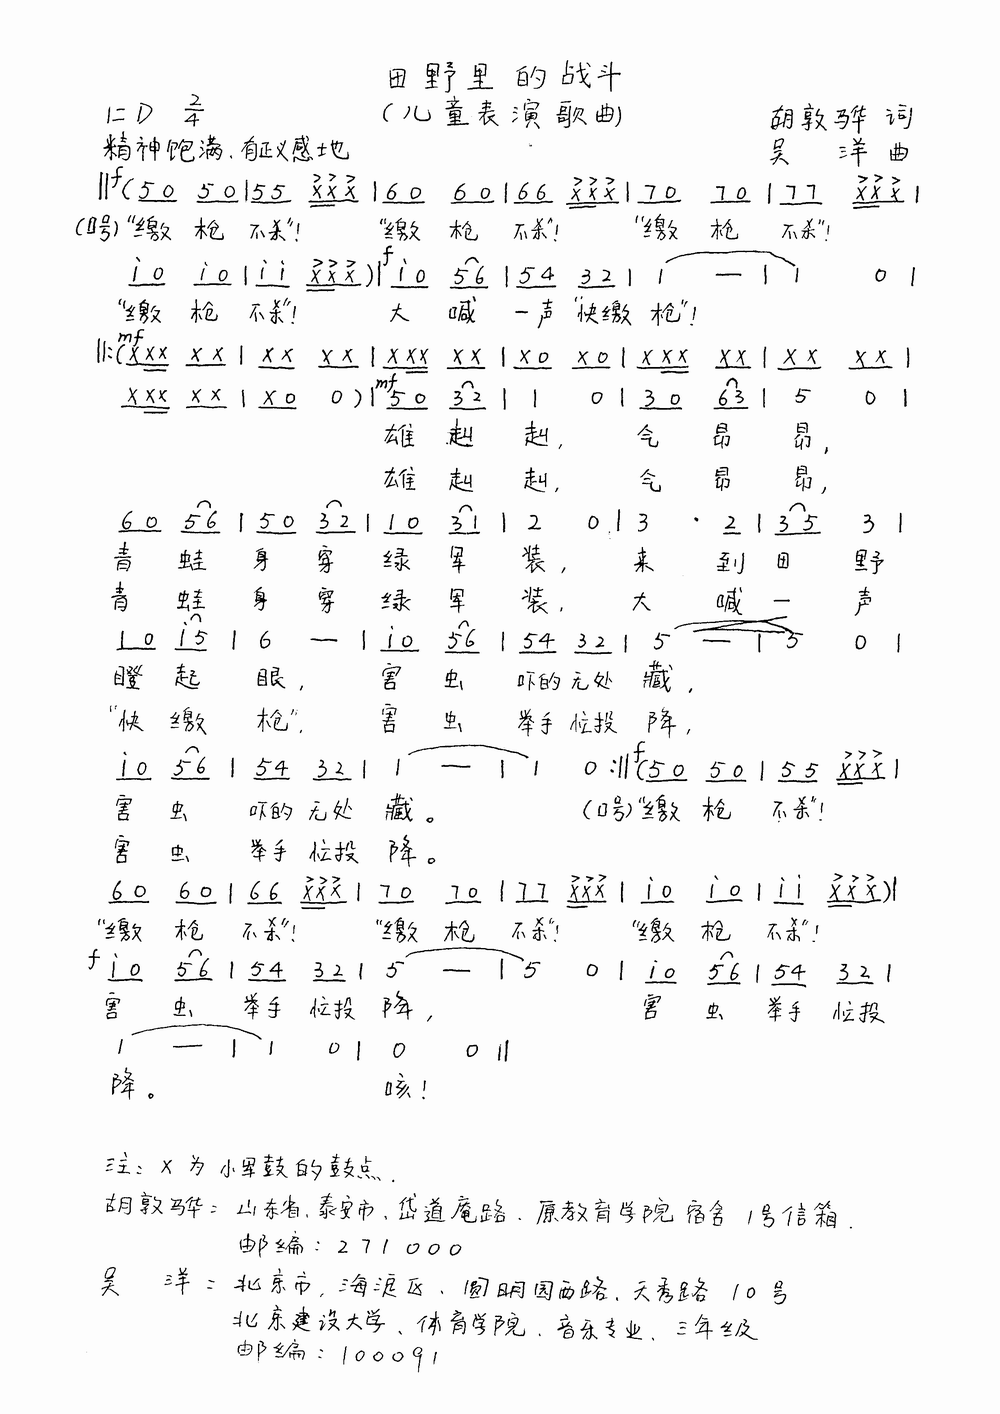 田野里的战斗
(儿童表演歌曲)
1=D 2/4
胡敦骅 词
精神饱满、有正义感地
吴 洋 曲
‖f(50 50|55 XXX|60 60|66 XXX|70 70|77 XXX|
(口号)“缴 枪 不杀”! “缴 枪 不杀”! “缴 枪 不杀”!
i0 i0|ii XXX)|f i0 56|54 32|1 —|1 0|
“缴 枪 不杀”! 大 喊 一声“快缴 枪”!
‖:mf(XXX XX|XX XX|XXX XX|X0 X0|XXX XX|XX XX|
XXX XX|X0 0)|mf 50 32|1 0|30 63|5 0|
雄 赳 赳, 气 昂 昂,
雄 赳 赳, 气 昂 昂,
60 56|50 32|10 31|2 0|3 · 2|35 3|
青 蛙 身 穿 绿 军 装, 来 到 田 野
青 蛙 身 穿 绿 军 装, 大 喊 一 声
10 i5|6 —|i0 56|54 32|5 —|5 0|
瞪 起 眼, 害 虫 吓的无处 藏,
“快 缴 枪”, 害 虫 举手忙投 降,
i0 56|54 32|1 —|1 0:‖f(50 50|55 XXX|
害 虫 吓的无处 藏。 (口号)“缴 枪 不杀”!
害 虫 举手忙投 降。
60 60|66 XXX|70 70|77 XXX|i0 i0|ii XXX)|
“缴 枪 不杀”! “缴 枪 不杀”! “缴 枪 不杀”!
f i0 56|54 32|5 —|5 0|i0 56|54 32|
害 虫 举手 忙投 降, 害 虫 举手 忙投
1 —|1 0|0 0‖
降。 咳!
注: X 为 小军鼓的鼓点.
胡敦骅: 山东省、泰安市、岱道庵路、原教育学院 宿舍 1号信箱.
邮编: 271000
吴 洋: 北京市, 海淀区、圆明园西路、天秀路 10号
北京建设大学、体育学院、音乐专业、三年级
邮编: 100091